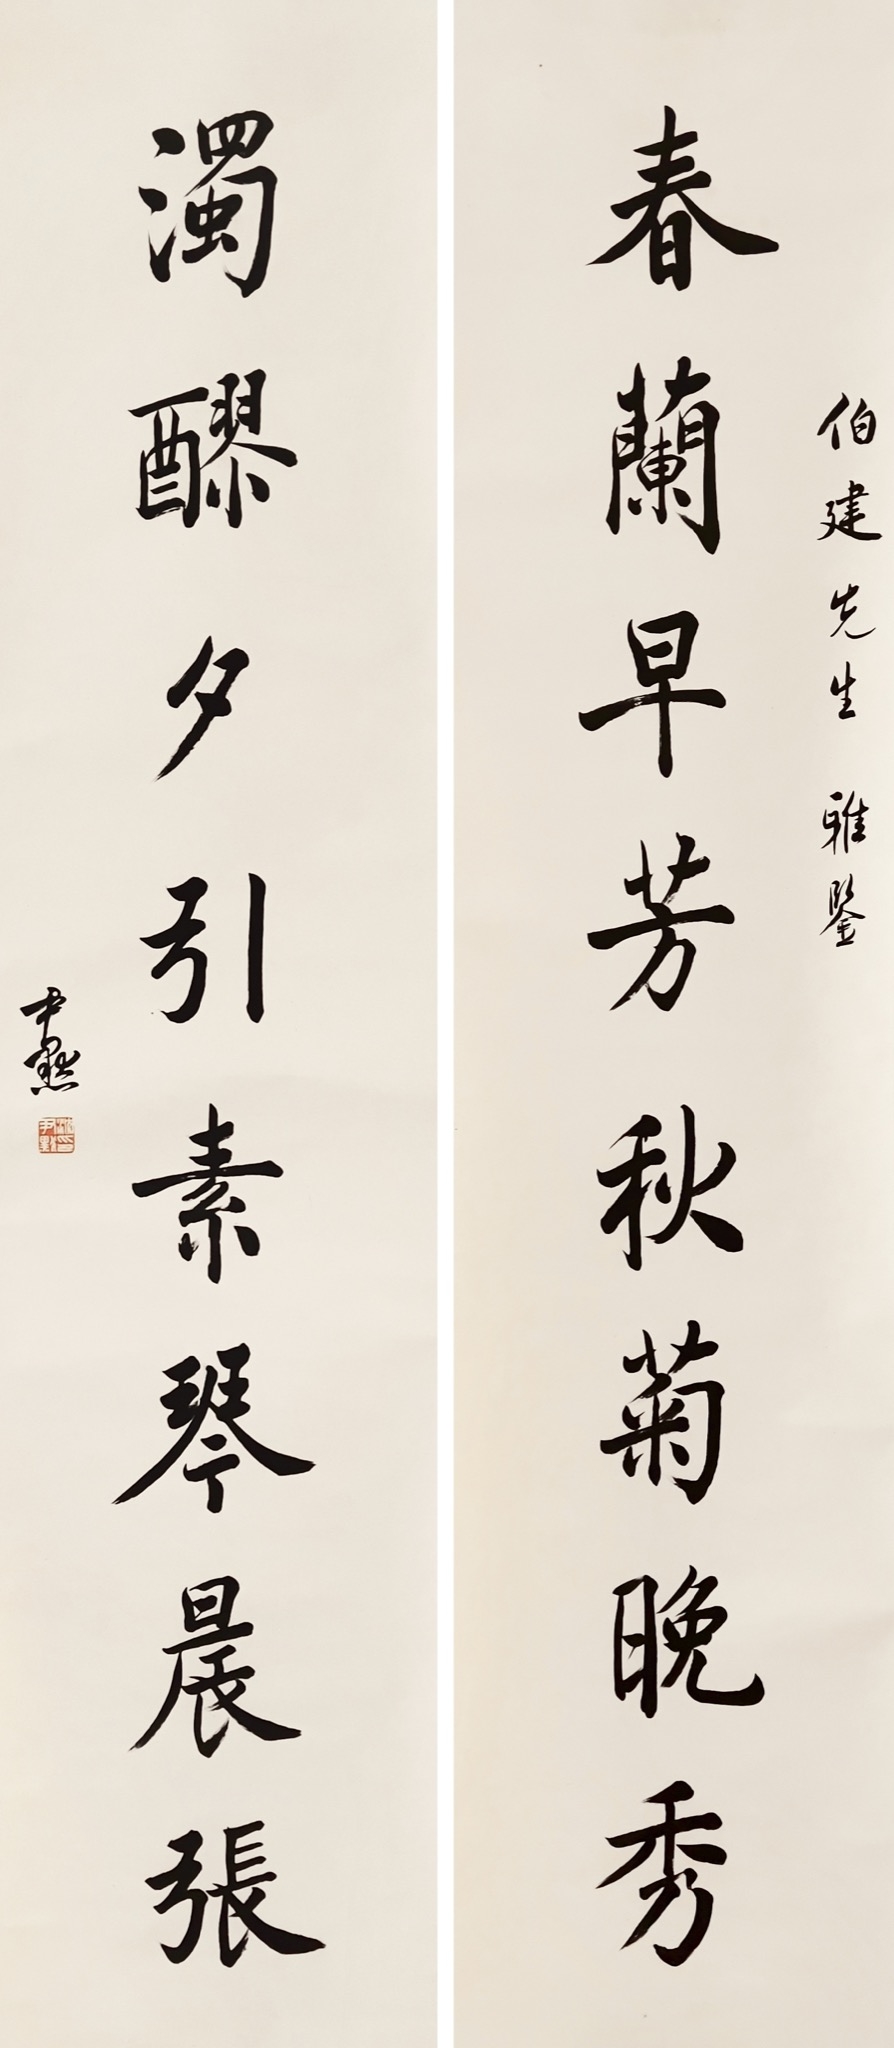 伯建先生 雅鑒
春蘭早芳秋菊晚秀
濁醪夕引素琴晨張
尹默